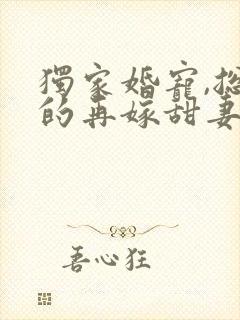 獨家婚寵,總
的再嫁甜妻
吾心狂